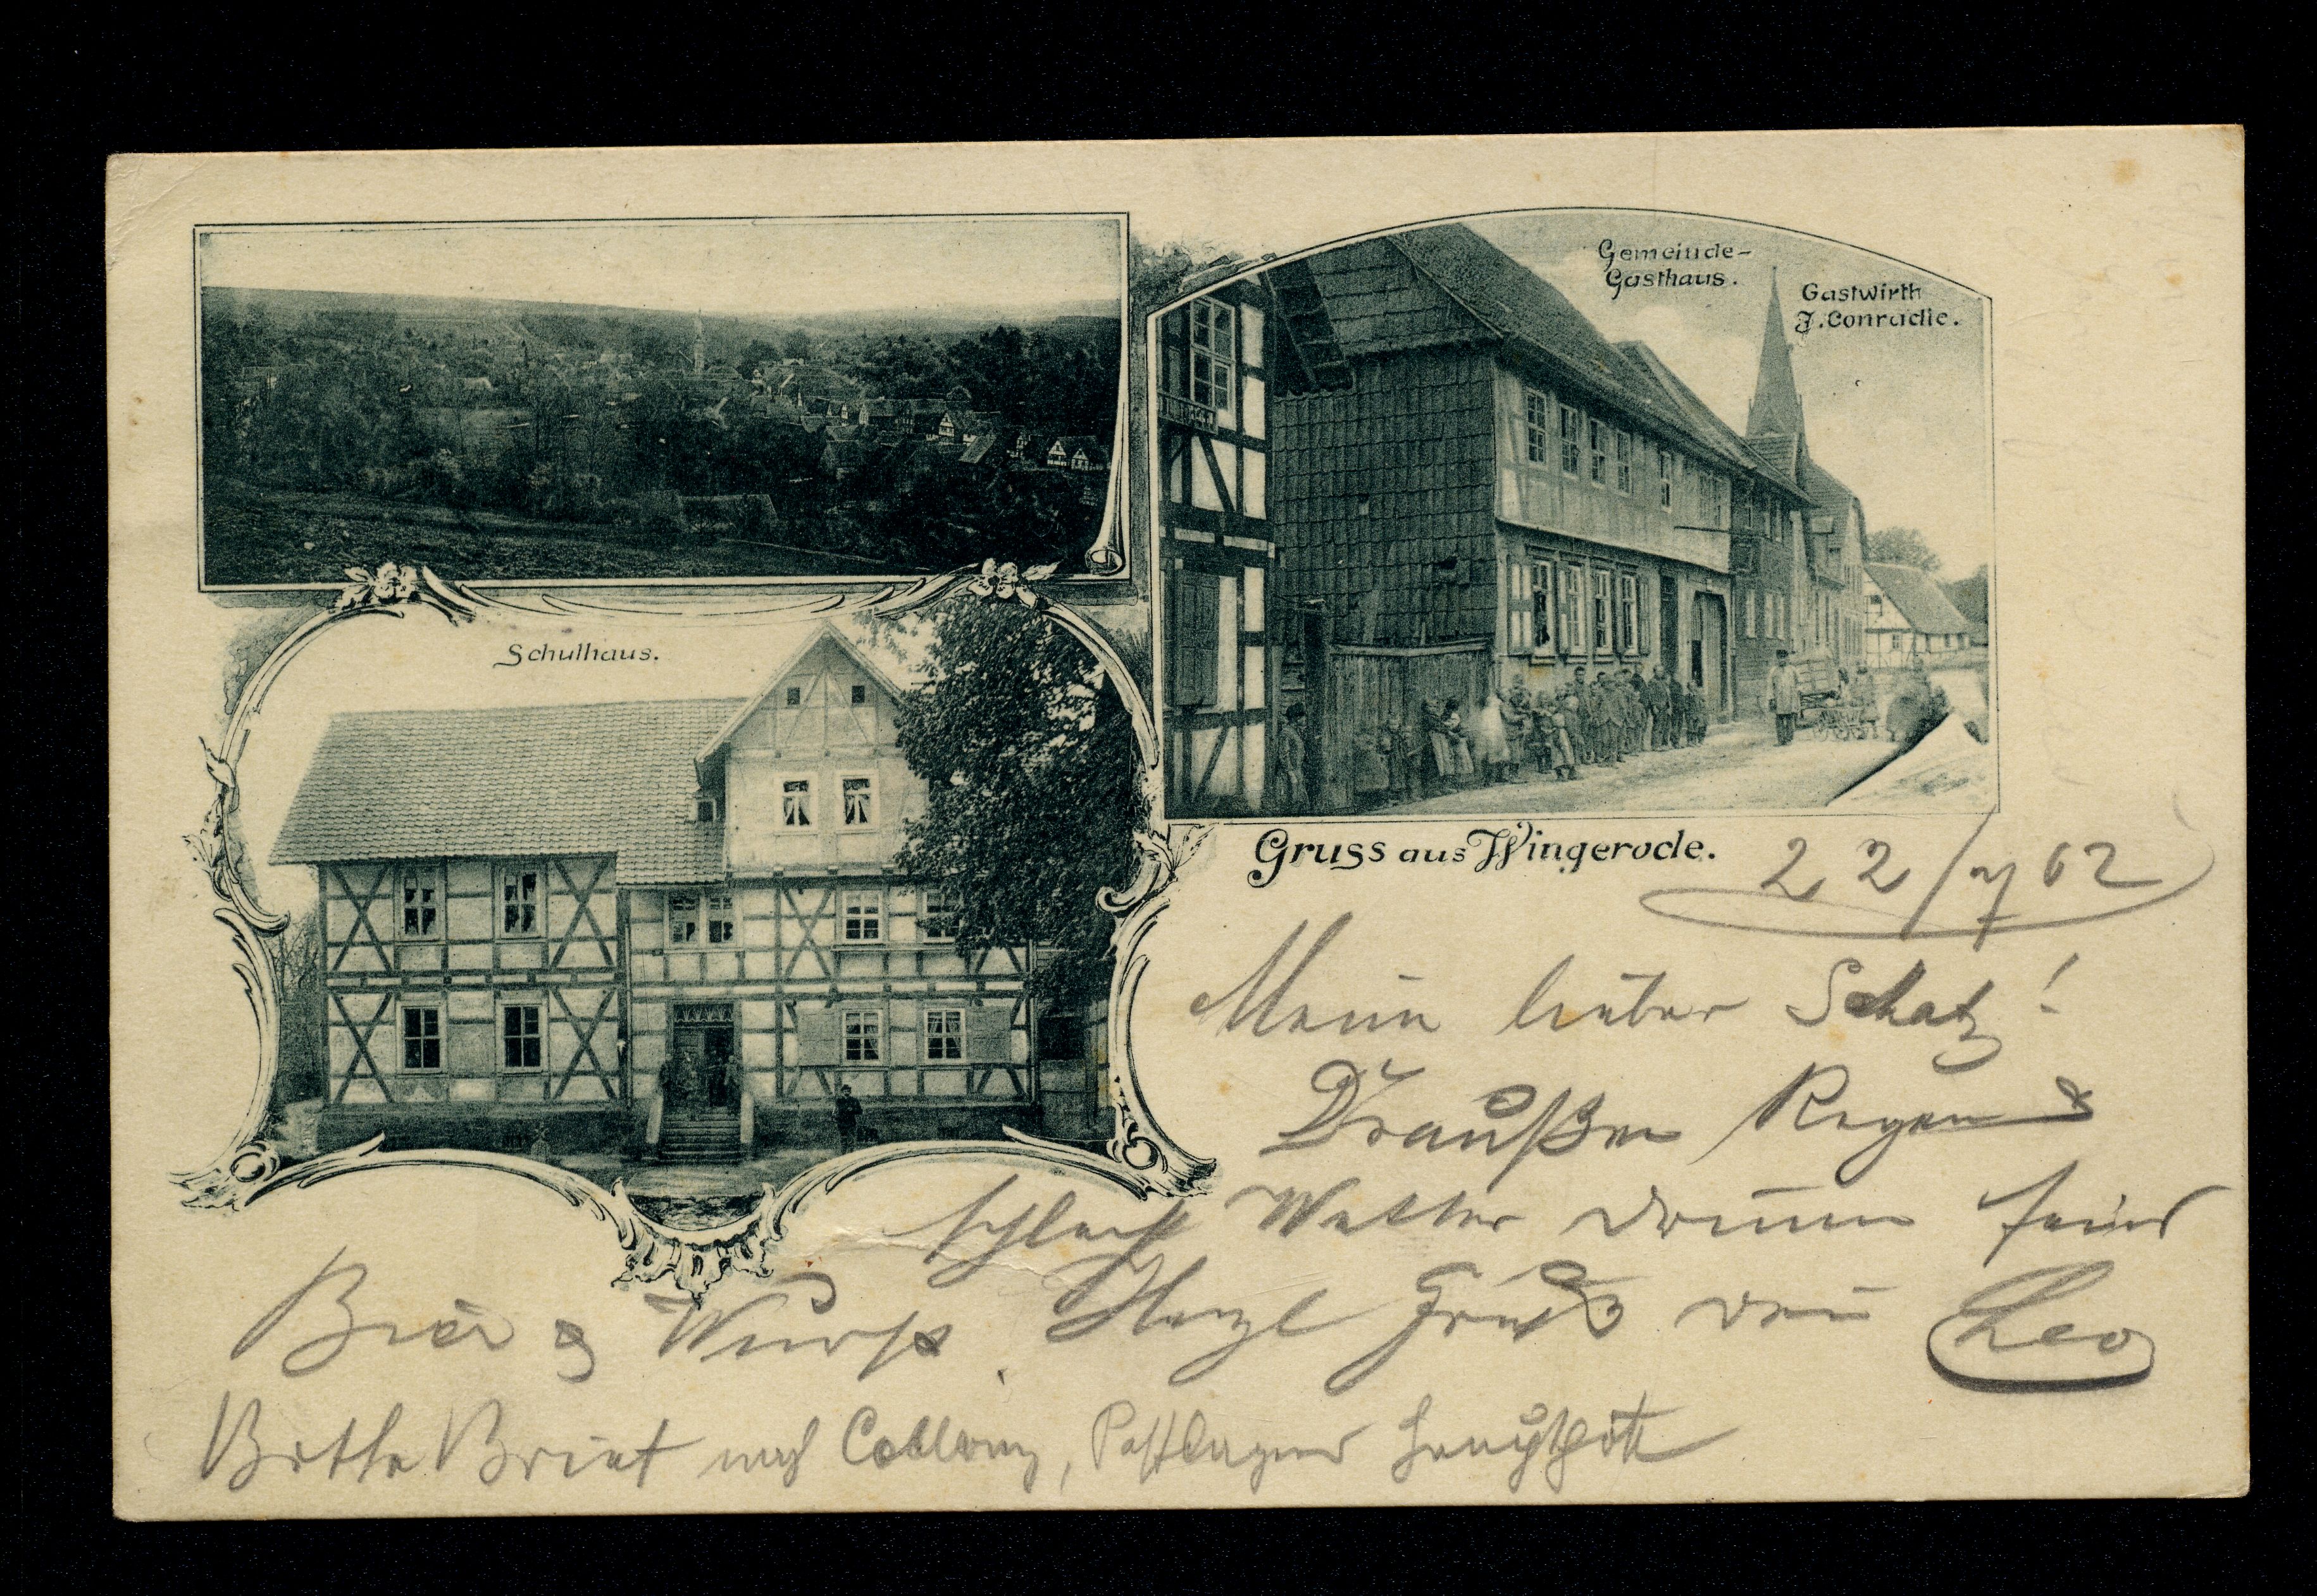 Gemeinde-
Gasthaus.
Gastwirth
J. Conradie.
Schulhaus.
Gruss aus Wingerode.
22/7 02
Mein lieber Schatz!
Draußen Regen &
schlecht Wetter drinnen
Bier & Wurst. Herzl Gruß Dein Leo
Bitte Brief nach Coblenz, Postlagernd Hauptpost